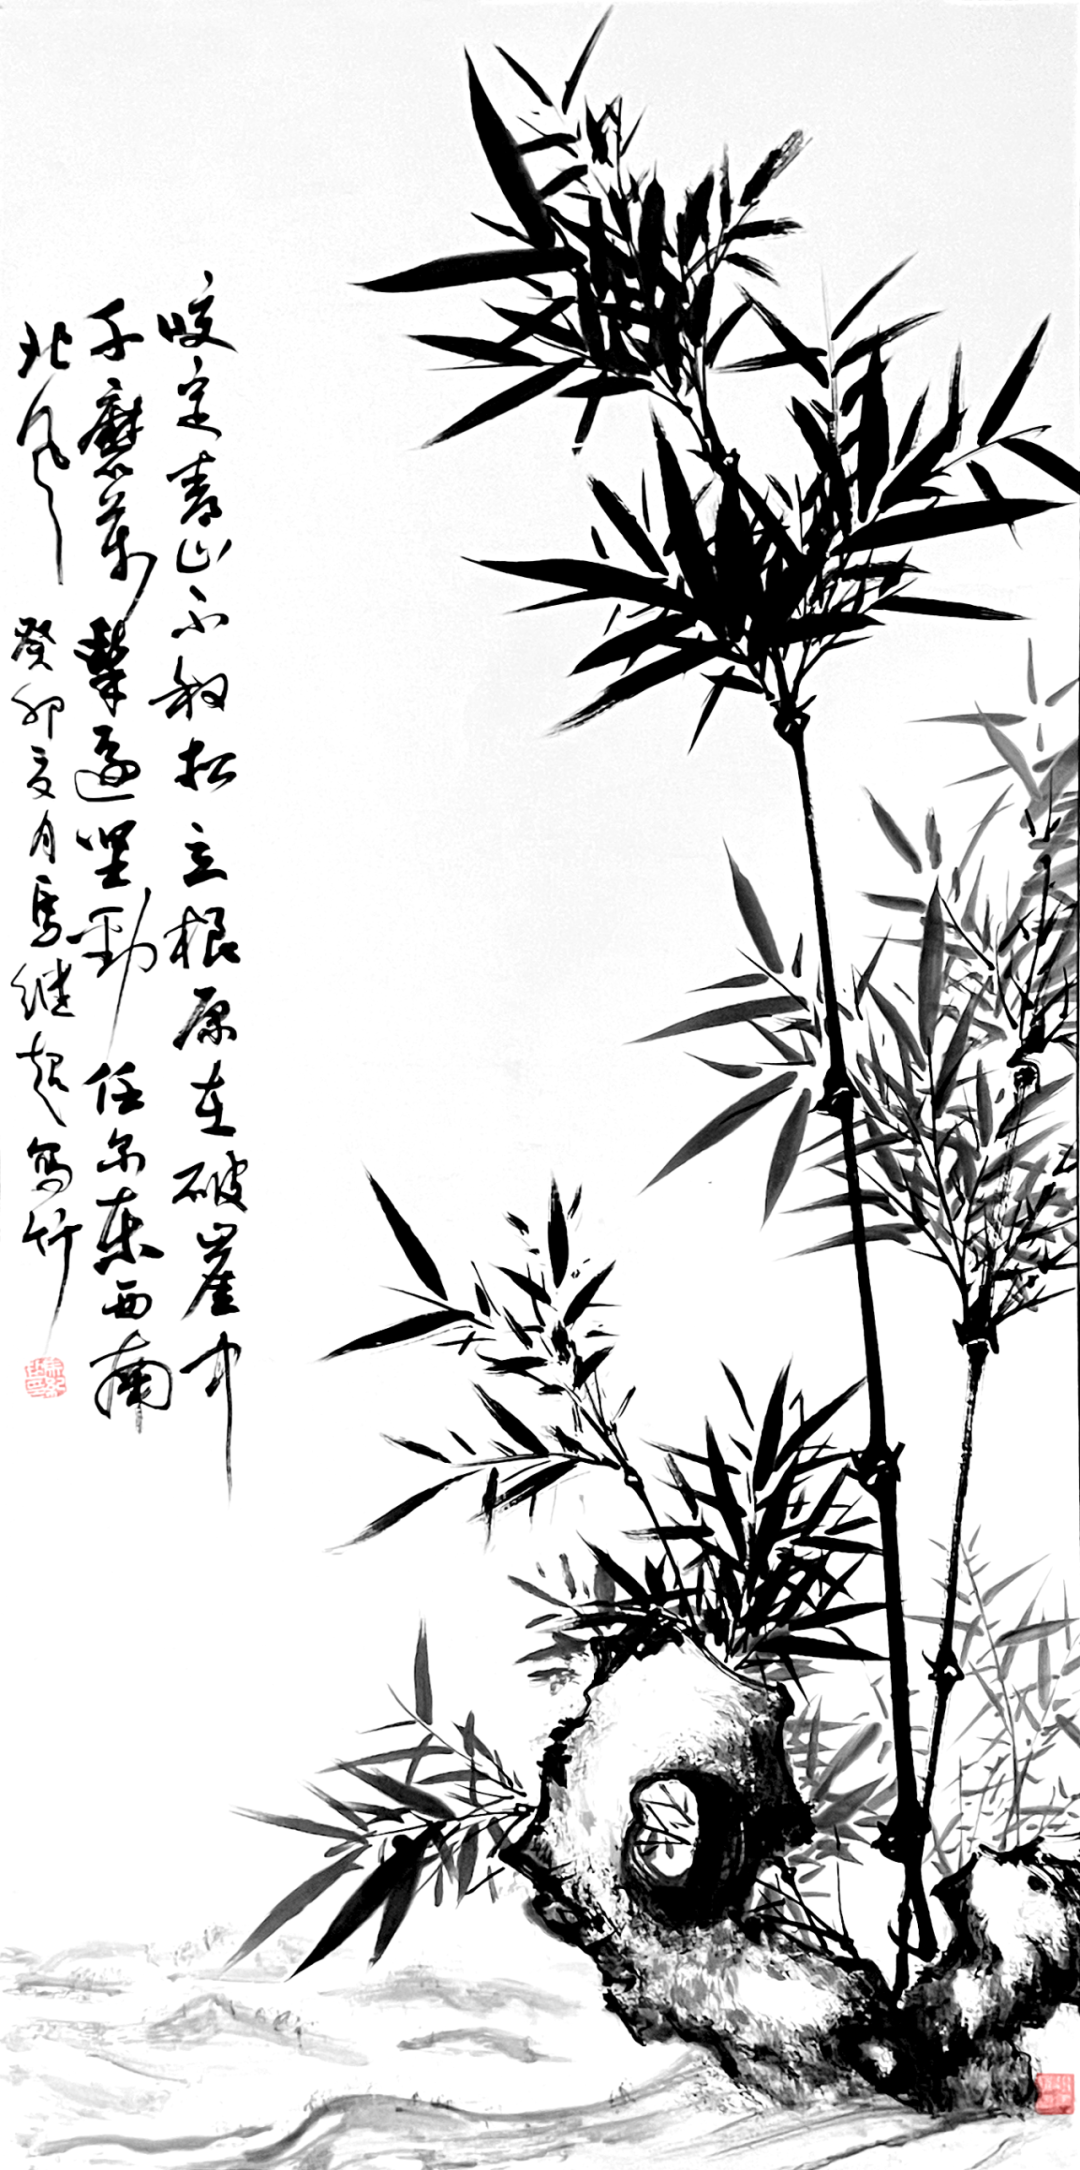 咬定青山不放松立根原在破崖中
千磨萬擊還坚劲任尔东西南
北风 癸卯夏月马继超写竹